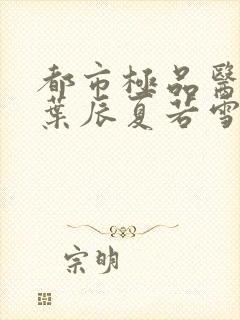 都市極品醫
葉辰夏若雪
宗明